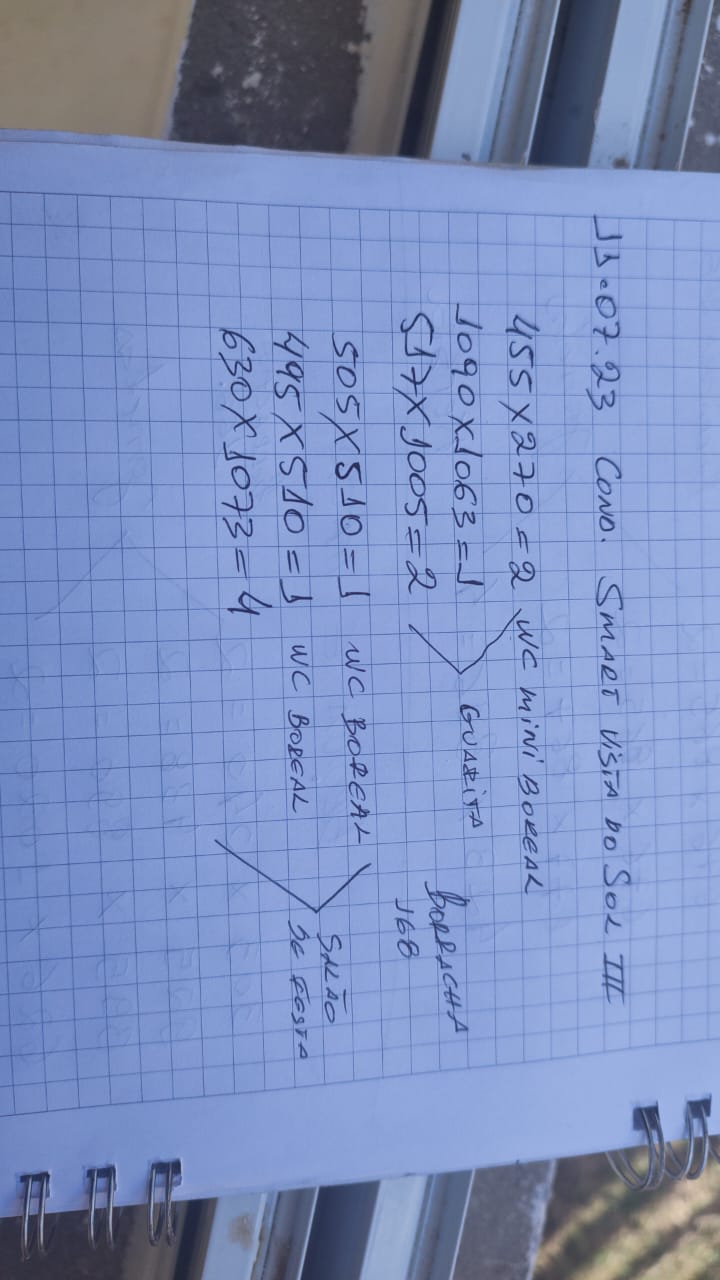 11.07.23 COND. SMART VISTA DO SOL III
455 X 270 = 2 WC MINI BOREAL
1090 X 1063 = 1 GUARITA
517 X 1005 = 2
BORRACHA
168
505 X 510 = 1 WC BOREAL
495 X 510 = 1 WC BOREAL
630 X 1073 = 4
SALÃO
DE FESTA